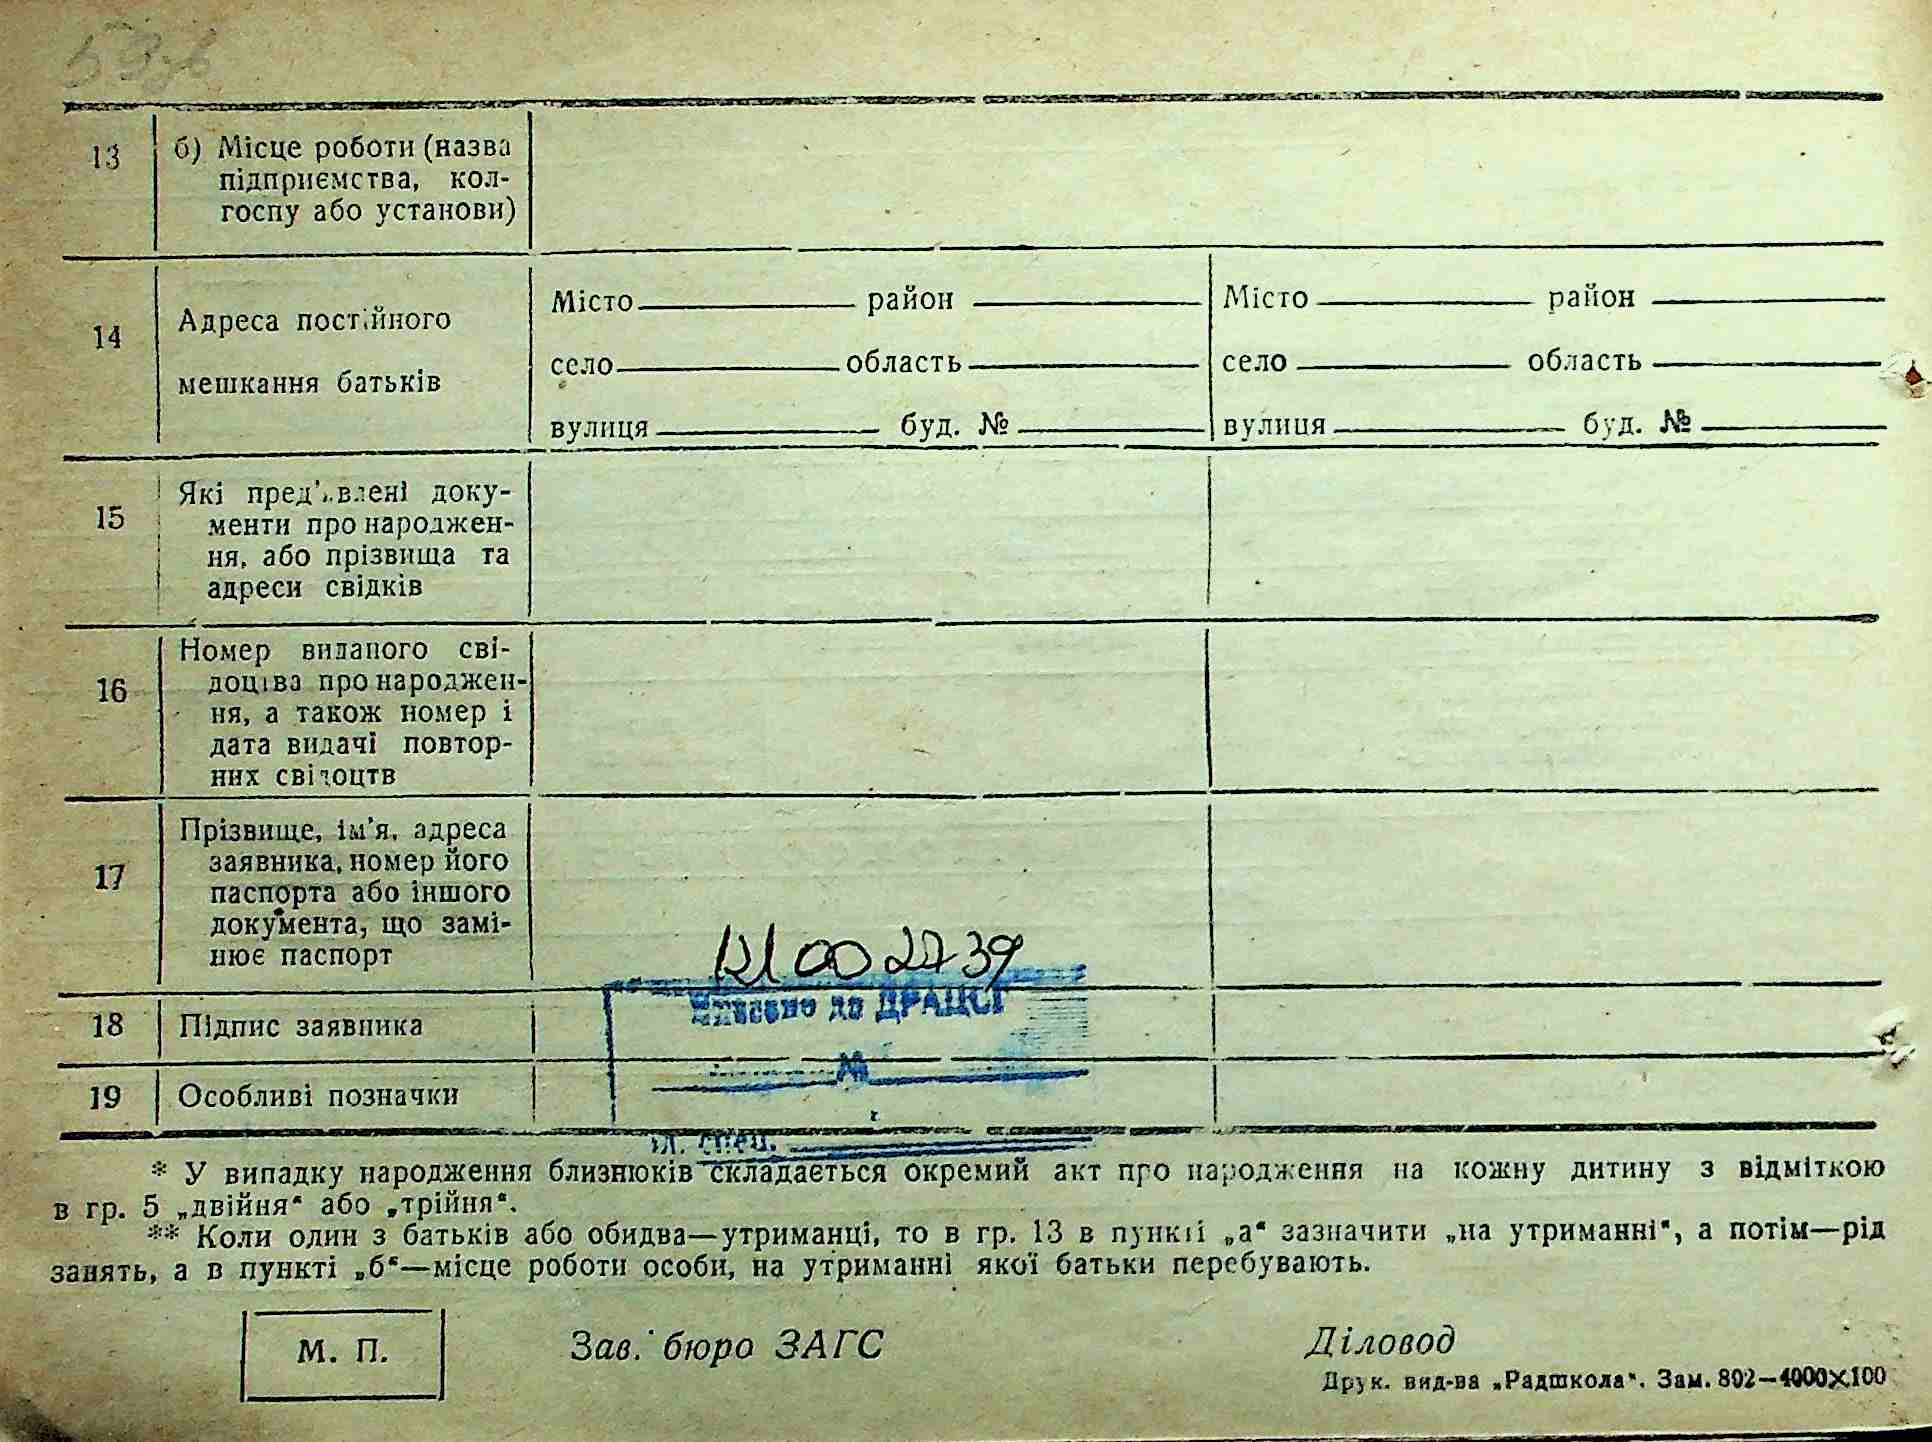 53зв
13 б) Місце роботи (назва
підприємства, кол-
госпу або установи)
14 Адреса постійного
мешкання батьків
Місто район Місто район
село область село область
вулиця буд. № вулиця буд. №
15 Які пред'явлені доку-
менти про народжен-
ня, або прізвища та
адреси свідків
16 Номер виданого сві-
доцтва про народжен-
ня, а також номер і
дата видачі повтор-
них свідоцтв
17 Прізвище, ім'я, адреса
заявника, номер його
паспорта або іншого
документа, що замі-
нює паспорт
00 2739
18 Підпис заявника
до ДРАЦСГ
№
19 Особливі позначки
Гл. спец.
* У випадку народження близнюків складається окремий акт про народження на кожну дитину з відміткою
в гр. 5 „двійня“ або „трійня“.
** Коли один з батьків або обидва—утриманці, то в гр. 13 в пункті „а“ зазначити „на утриманні“, а потім—рід
занять, а в пункті „б“—місце роботи особи, на утриманні якої батьки перебувають.
М. П. Зав. бюро ЗАГС Діловод
Друк. вид-ва „Радшкола“. Зам. 802—4000×100